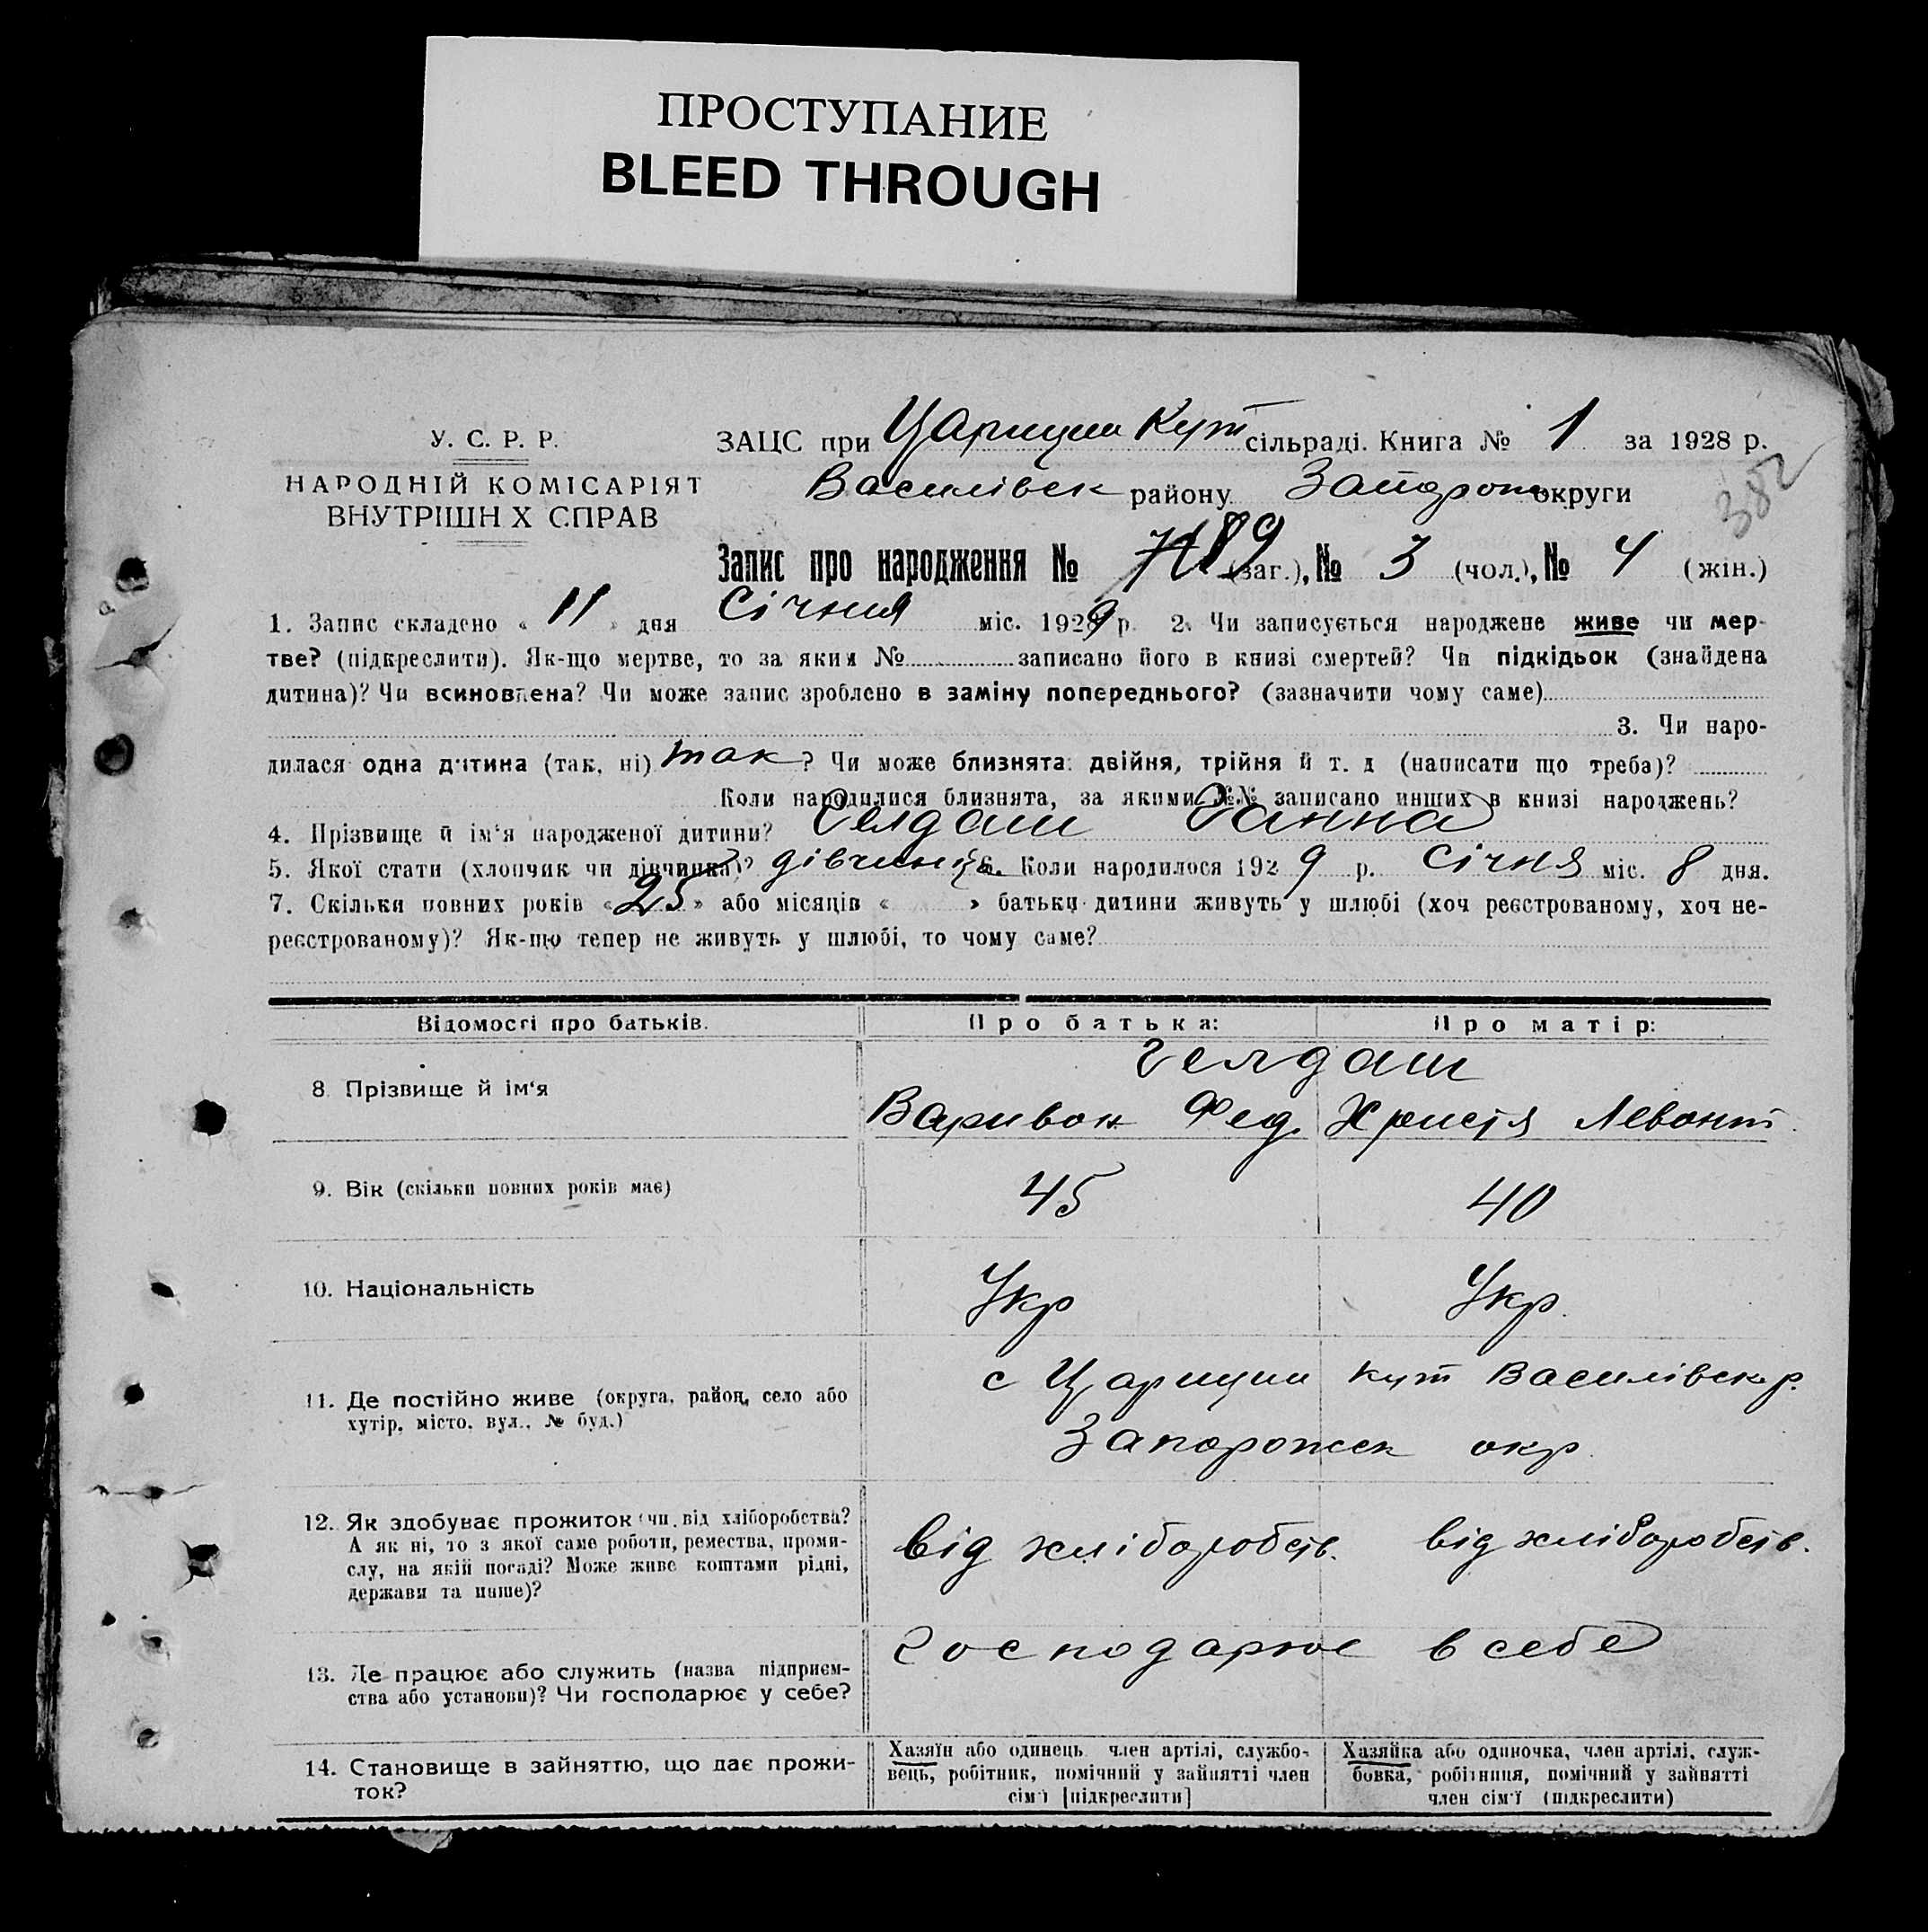 ПРОСТУПАНИЕ
BLEED THROUGH
У. С. Р. Р.
НАРОДНІЙ КОМІСАРІЯТ
ВНУТРІШН Х СПРАВ
ЗАЦС при Царицин Кут сільраді. Книга № 1 за 1928 р.
Василівськ району Запорож округи
382
Запис про народження № 89 (заг.), № 3 (чол.), № 4 (жін.)
1. Запис складено « 11 » дня Січня міс. 1929 р. 2. Чи записується народжене живе чи мер-
тве? (підкреслити). Як-що мертве, то за яким № записано його в книзі смертей? Чи підкідьок (знайдена
дитина)? Чи всиновлена? Чи може запис зроблено в заміну попереднього? (зазначити чому саме)
3. Чи наро-
дилася одна дитина (так, ні) так? Чи може близнята: двійня, трійня й т. д (написати що треба)?
Коли народилися близнята, за якими №№ записано инших в книзі народжень?
4. Прізвище й ім'я народженої дитини? Гелдаш Ганна
5. Якої стати (хлопчик чи дівчинка)? дівчина 6. Коли народилося 1929 р. Січня міс. 8 дня.
7. Скільки повних років « 25 » або місяців « » батьки дитини живуть у шлюбі (хоч реєстрованому, хоч не-
реєстрованому)? Як-що тепер не живуть у шлюбі, то чому саме?
Відомості про батьків. Про батька: Про матір:
Гелдаш
8 Прізвище й ім'я Варивон Фед. Христя Левонт.
9. Вік (скільки повних років має) 45 40
10. Національність Укр Укр.
11. Де постійно живе (округа, район, село або
хутір, місто, вул., № буд.)
с Царицин Кут Василівськ р.
Запорожск окр.
12. Як здобуває прожиток (чи від хліборобства?
А як ні, то з якої саме роботи, ремества, проми-
слу, на якій посаді? Може живе коштами рідні,
держави та инше)?
від хліборобств. від хліборобств.
13. Де працює або служить (назва підприєм-
ства або установи)? Чи господарює у себе?
господарює в себе
14. Становище в зайняттю, що дає прожи-
ток?
Хазяїн або одинець, член артілі, службо-
вець, робітник, помічний у зайнятті член
сім'ї [підкреслити]
Хазяйка або одиночка, член артілі, служ-
бовка, робітниця, помічний у зайнятті
член сім'ї (підкреслити)